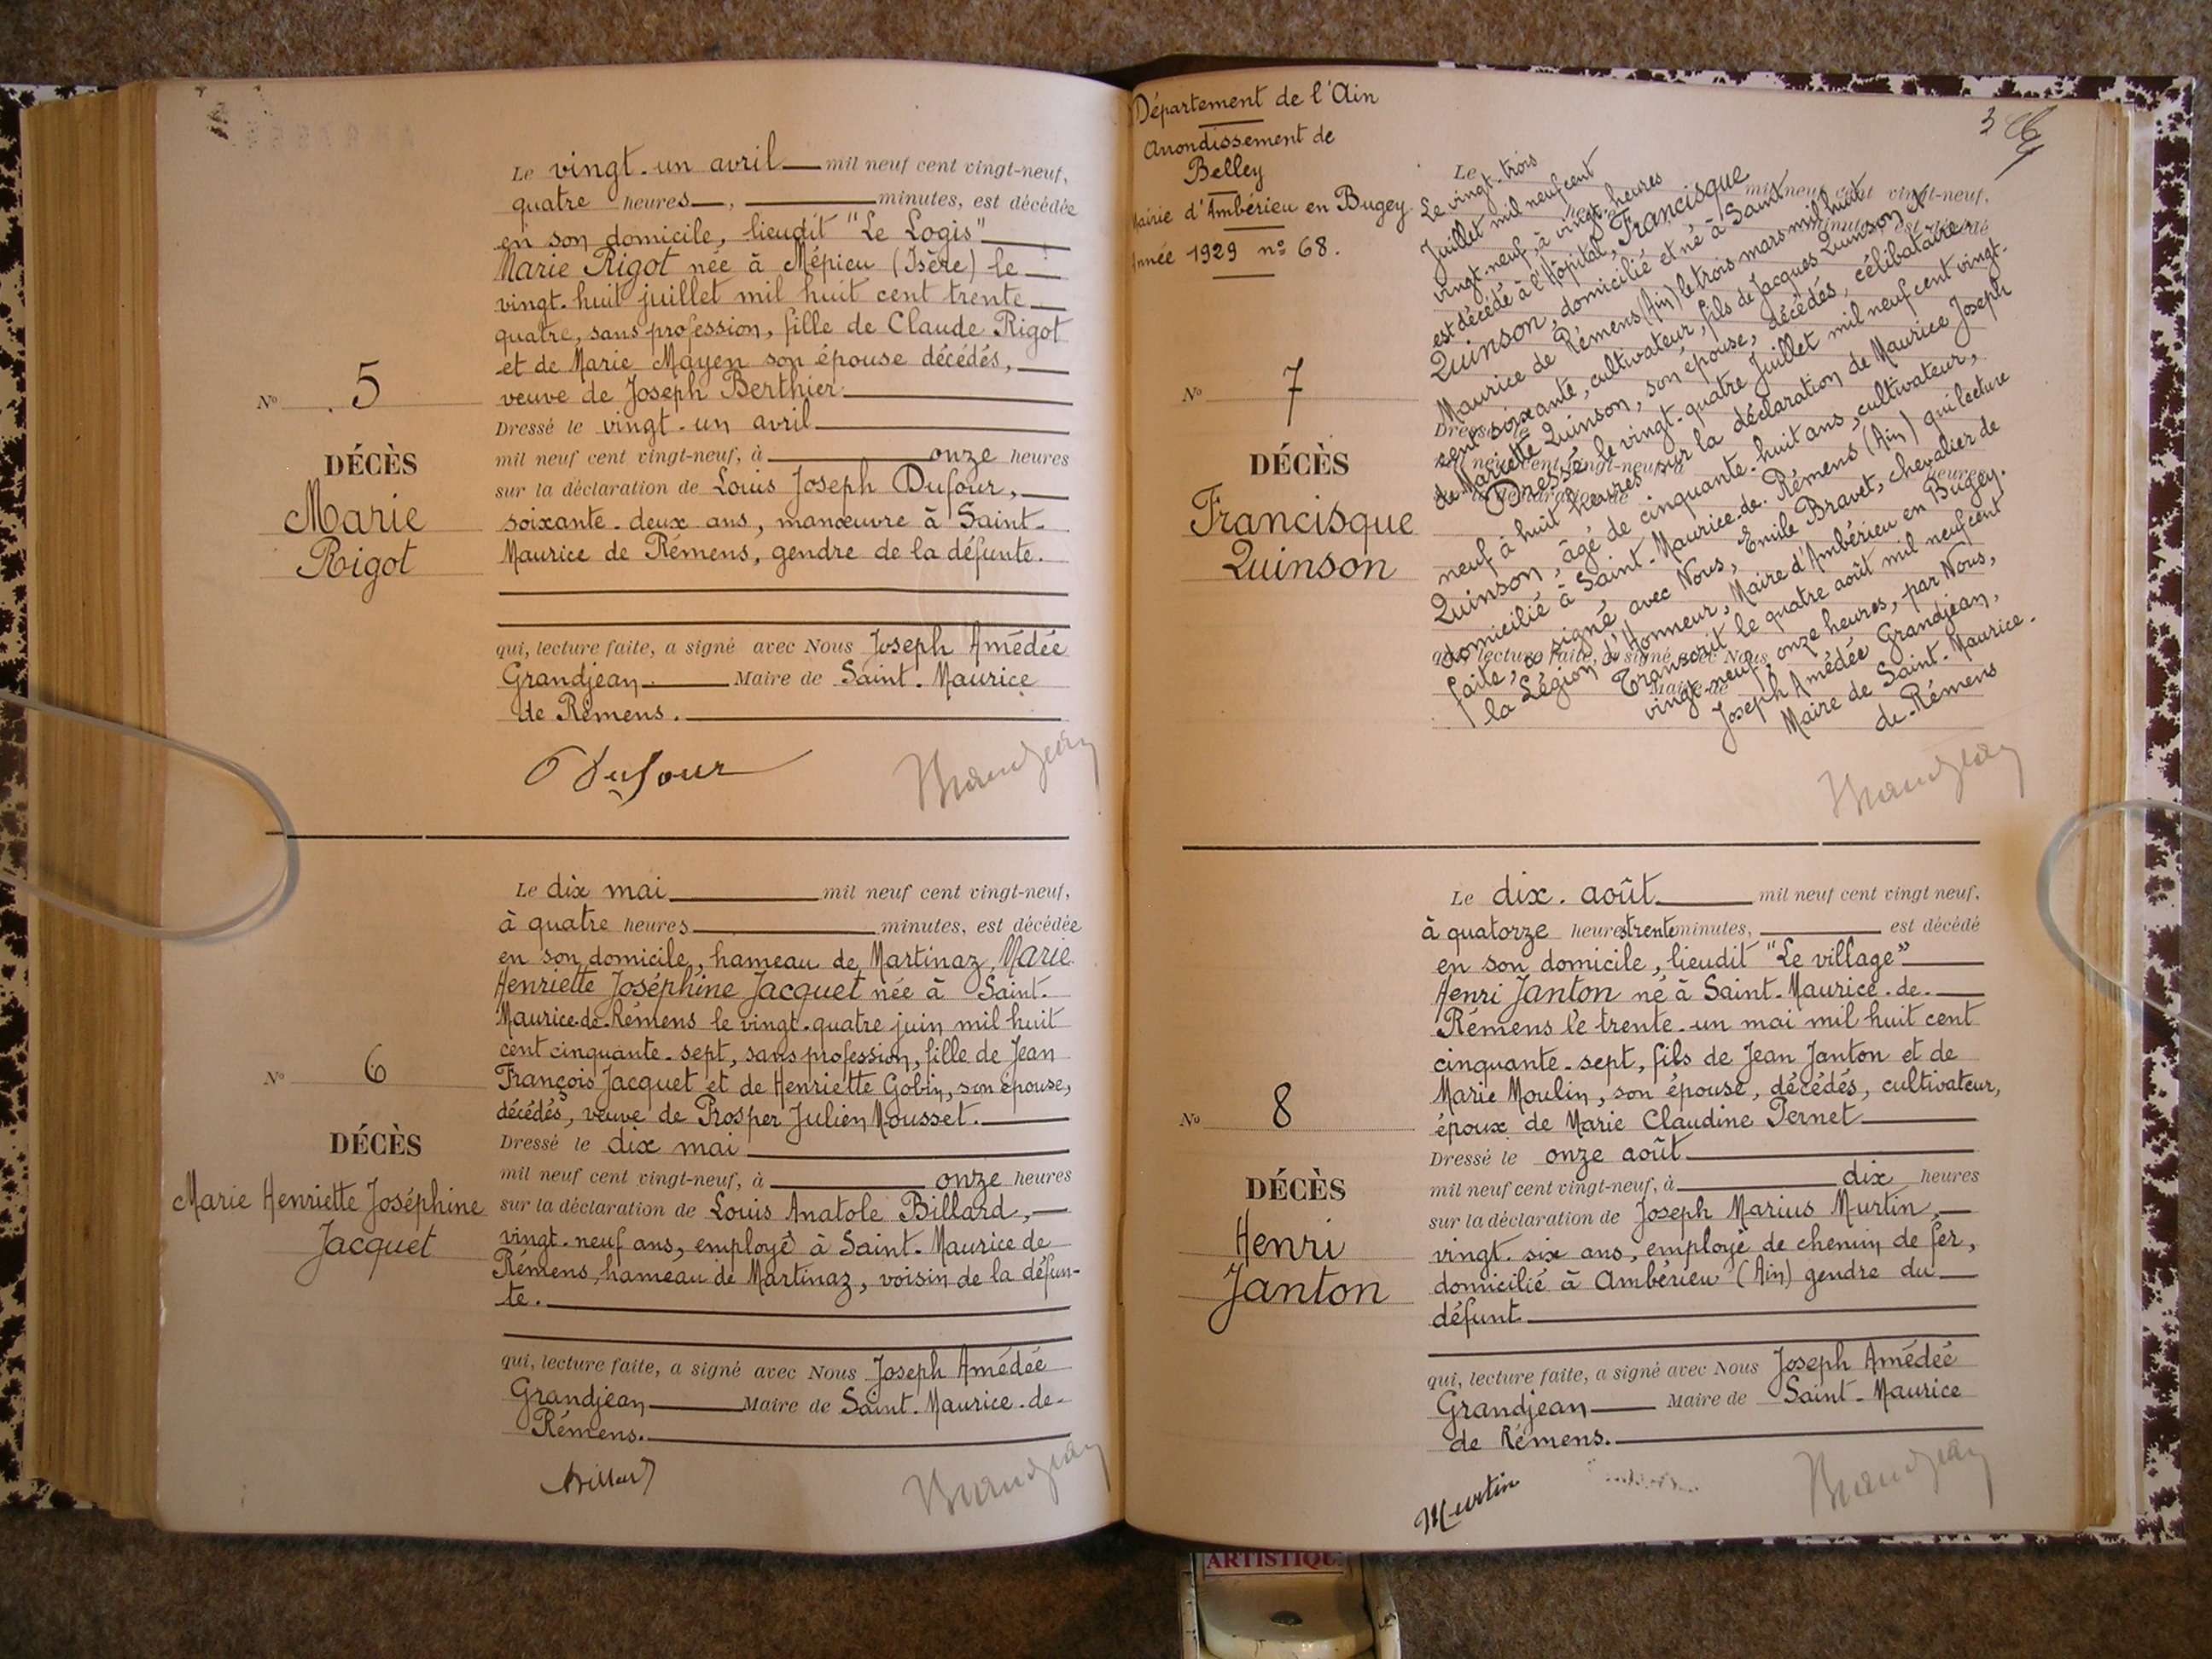 Le vingt-un avril mil neuf cent vingt-neuf,
quatre heures, minutes, est décédée
en son domicile, lieudit "Le Logis"
Marie Rigot née à Mépieu (Isère) le
vingt-huit juillet mil huit cent trente
quatre, sans profession, fille de Claude Rigot
et de Marie Mayen son épouse décédés,
veuve de Joseph Berthier.
Dressé le vingt-un avril
mil neuf cent vingt-neuf, à onze heures
sur la déclaration de Louis Joseph Dufour,
soixante-deux ans, manœuvre à Saint-
Maurice de Rémens, gendre de la défunte.
qui, lecture faite, a signé avec Nous Joseph Amédée
Grandjean Maire de Saint-Maurice
de Rémens.
Dufour Grandjean
No 5
DÉCÈS
Marie
Rigot
Le dix mai mil neuf cent vingt-neuf,
à quatre heures minutes, est décédée
en son domicile, hameau de Martinaz, Marie
Henriette Joséphine Jacquet née à Saint-
Maurice-de-Rémens le vingt-quatre juin mil huit
cent cinquante-sept, sans profession, fille de Jean
François Jacquet et de Henriette Gobin, son épouse,
décédés, veuve de Prosper Julien Mousset.
Dressé le dix mai
mil neuf cent vingt-neuf, à onze heures
sur la déclaration de Louis Anatole Billard,
vingt-neuf ans, employé à Saint-Maurice de
Rémens, hameau de Martinaz, voisin de la défun-
te.
qui, lecture faite, a signé avec Nous Joseph Amédée
Grandjean Maire de Saint-Maurice-de-
Rémens.
Billard Grandjean
No 6
DÉCÈS
Marie Henriette Joséphine
Jacquet
Département de l'Ain
Arrondissement de
Belley
Mairie d'Ambérieu en Bugey
Année 1929 no 68.
3
No 7
DÉCÈS
Francisque
Quinson
Le vingt-trois
Juillet mil neuf cent
vingt-neuf, à vingt heures
est décédé à l'Hôpital, Francisque
Quinson, domicilié et né à Saint
Maurice de Rémens (Ain) le trois mars mil huit
cent soixante, cultivateur, fils de Jacques Quinson et
de Mariette Quinson, son épouse, décédés, célibataire.
Dressé le vingt-quatre Juillet mil neuf cent vingt-
neuf à huit heures sur la déclaration de Maurice Joseph
Quinson, âgé de cinquante-huit ans, cultivateur,
domicilié à Saint-Maurice-de-Rémens (Ain) qui lecture
faite, a signé avec Nous, Emile Bravet, chevalier de
la Légion d'Honneur, Maire d'Ambérieu en Bugey.
Transcrit le quatre août mil neuf cent
vingt-neuf, onze heures, par Nous,
Joseph Amédée Grandjean,
Maire de Saint-Maurice-
de-Rémens
Grandjean
Le dix-août mil neuf cent vingt neuf,
à quatorze heures trente minutes, est décédé
en son domicile, lieudit "Le village"
Henri Janton né à Saint-Maurice-de-
Rémens le trente-un mai mil huit cent
cinquante-sept, fils de Jean Janton et de
Marie Moulin, son épouse, décédés, cultivateur,
époux de Marie Claudine Pernet
Dressé le onze août
mil neuf cent vingt-neuf, à dix heures
sur la déclaration de Joseph Marius Murtin,
vingt-six ans, employé de chemin de fer,
domicilié à Ambérieu (Ain) gendre du
défunt
qui, lecture faite, a signé avec Nous Joseph Amédée
Grandjean Maire de Saint-Maurice
de Rémens.
Murtin Grandjean
No 8
DÉCÈS
Henri
Janton
ARTISTIQU